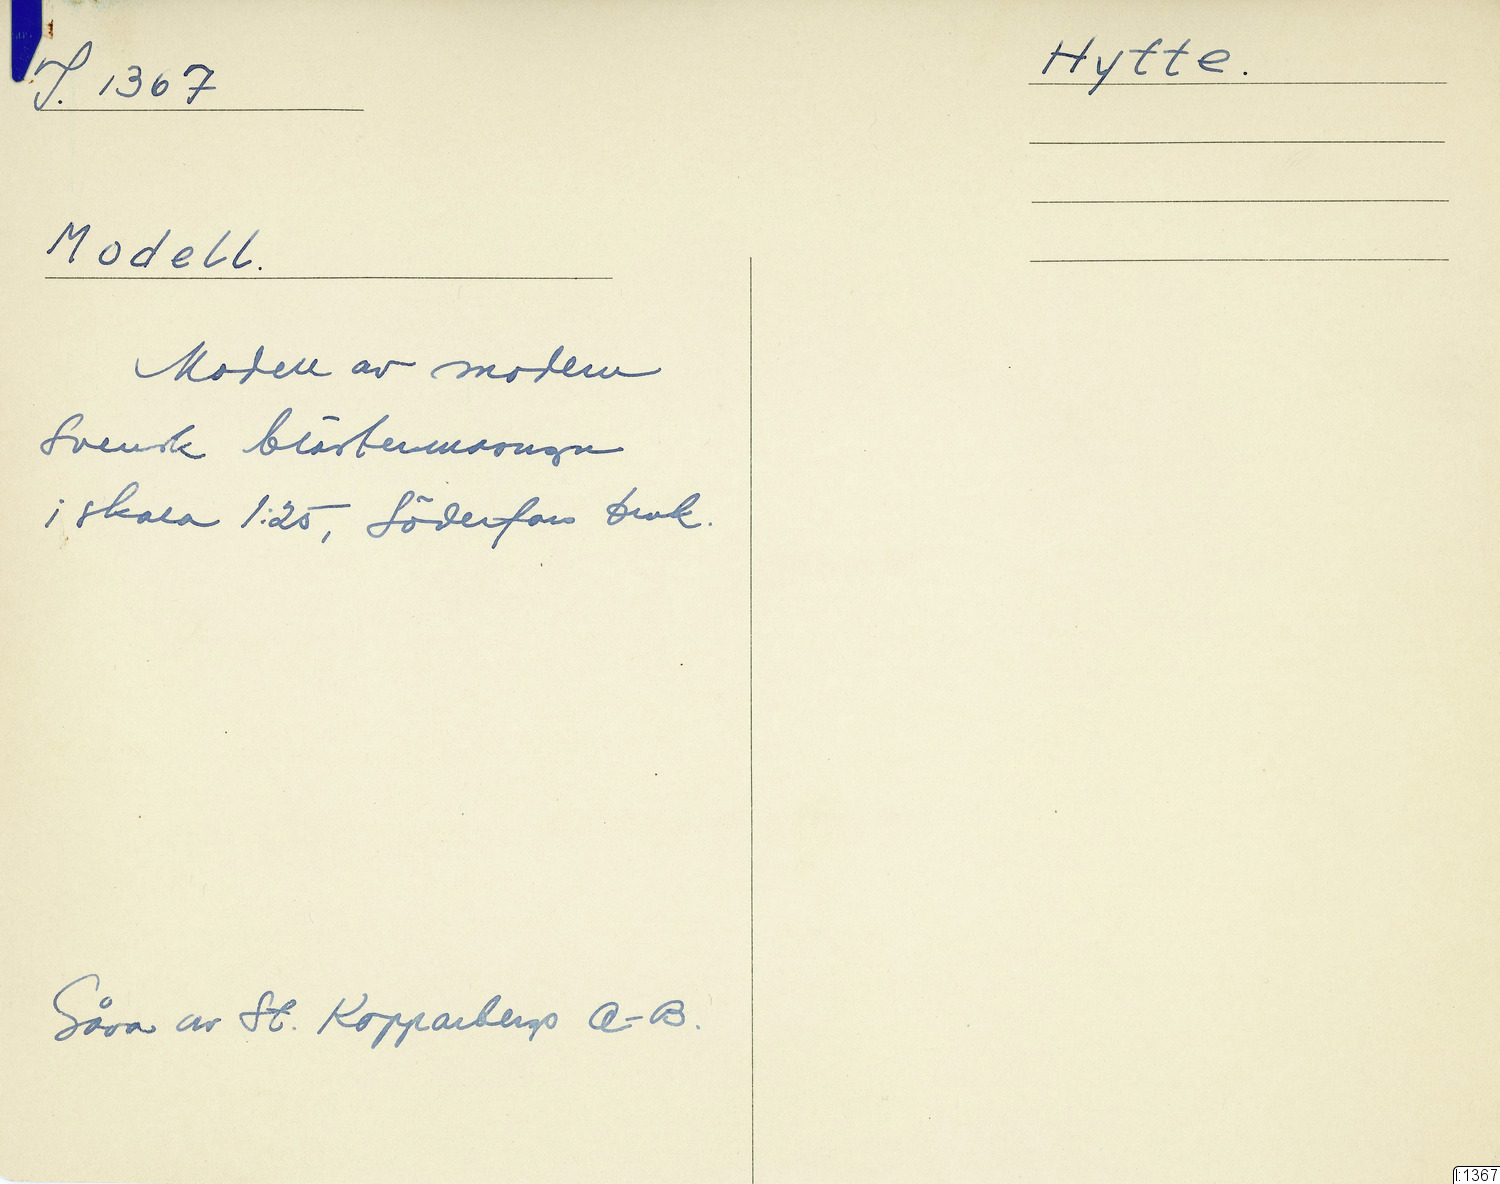 J. 1367
Hytte.
Modell.
Modell av modern
svensk blästermasugn
i skala 1:25, Söderfors bruk.
Gåva av St. Kopparbergs A-B.
I:1367